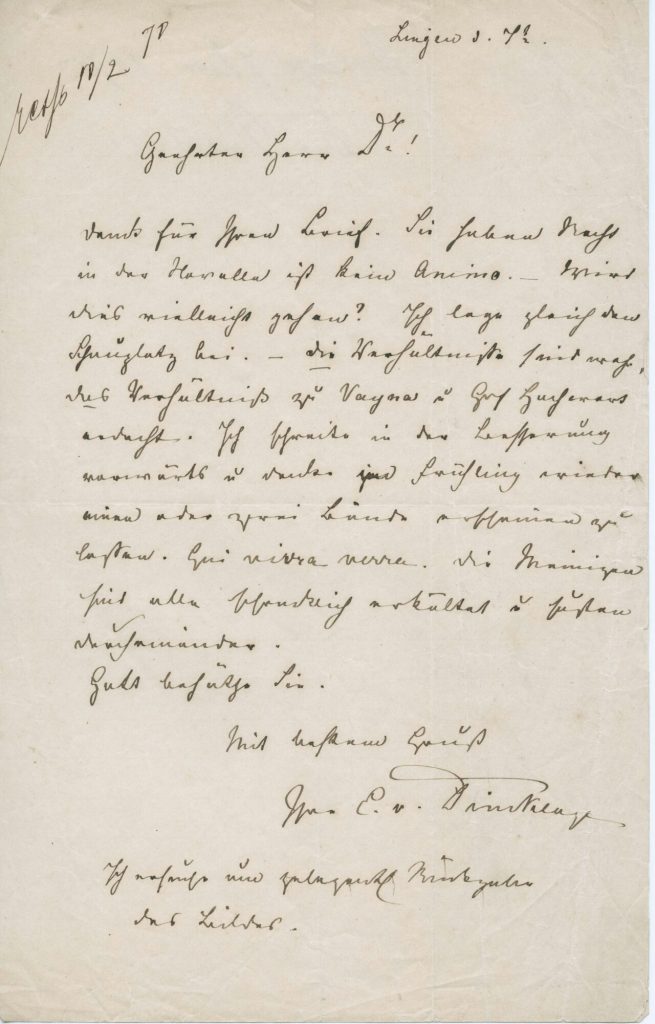 10/2 70
Lingen d. 7/2.
Geehrter Herr Dr!
Dank für Ihren Brief. Sie haben Recht
in der Novelle ist kein Animo. – Wird
dies vielleicht gehen? Ich lege gleich den
Schauplatz bei. – die Verhältnisse sind wahr,
das Verhältniß zu Vagna u Graf
erdacht. Ich schreite in der Besserung
vorwärts u denke im Frühling wieder
einen oder zwei Bände erscheinen zu
lassen. Qui vivra verra. Die Meinigen
sind alle schrecklich erkältet u husten
durcheinander.
Gott behüthe Sie.
Mit bestem Gruß
Ihre E. v. Dincklage
Ich ersuche um gelegentl Rückgabe
des Bildes.